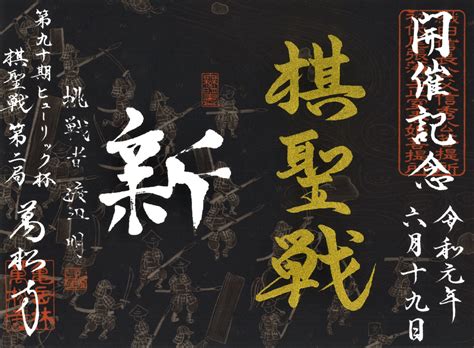 開催記念
令和元年
六月十九日
棋聖戦
新
挑戦者渡辺明
第九十期ヒューリック杯
棋聖戦 第二局
萬松寺